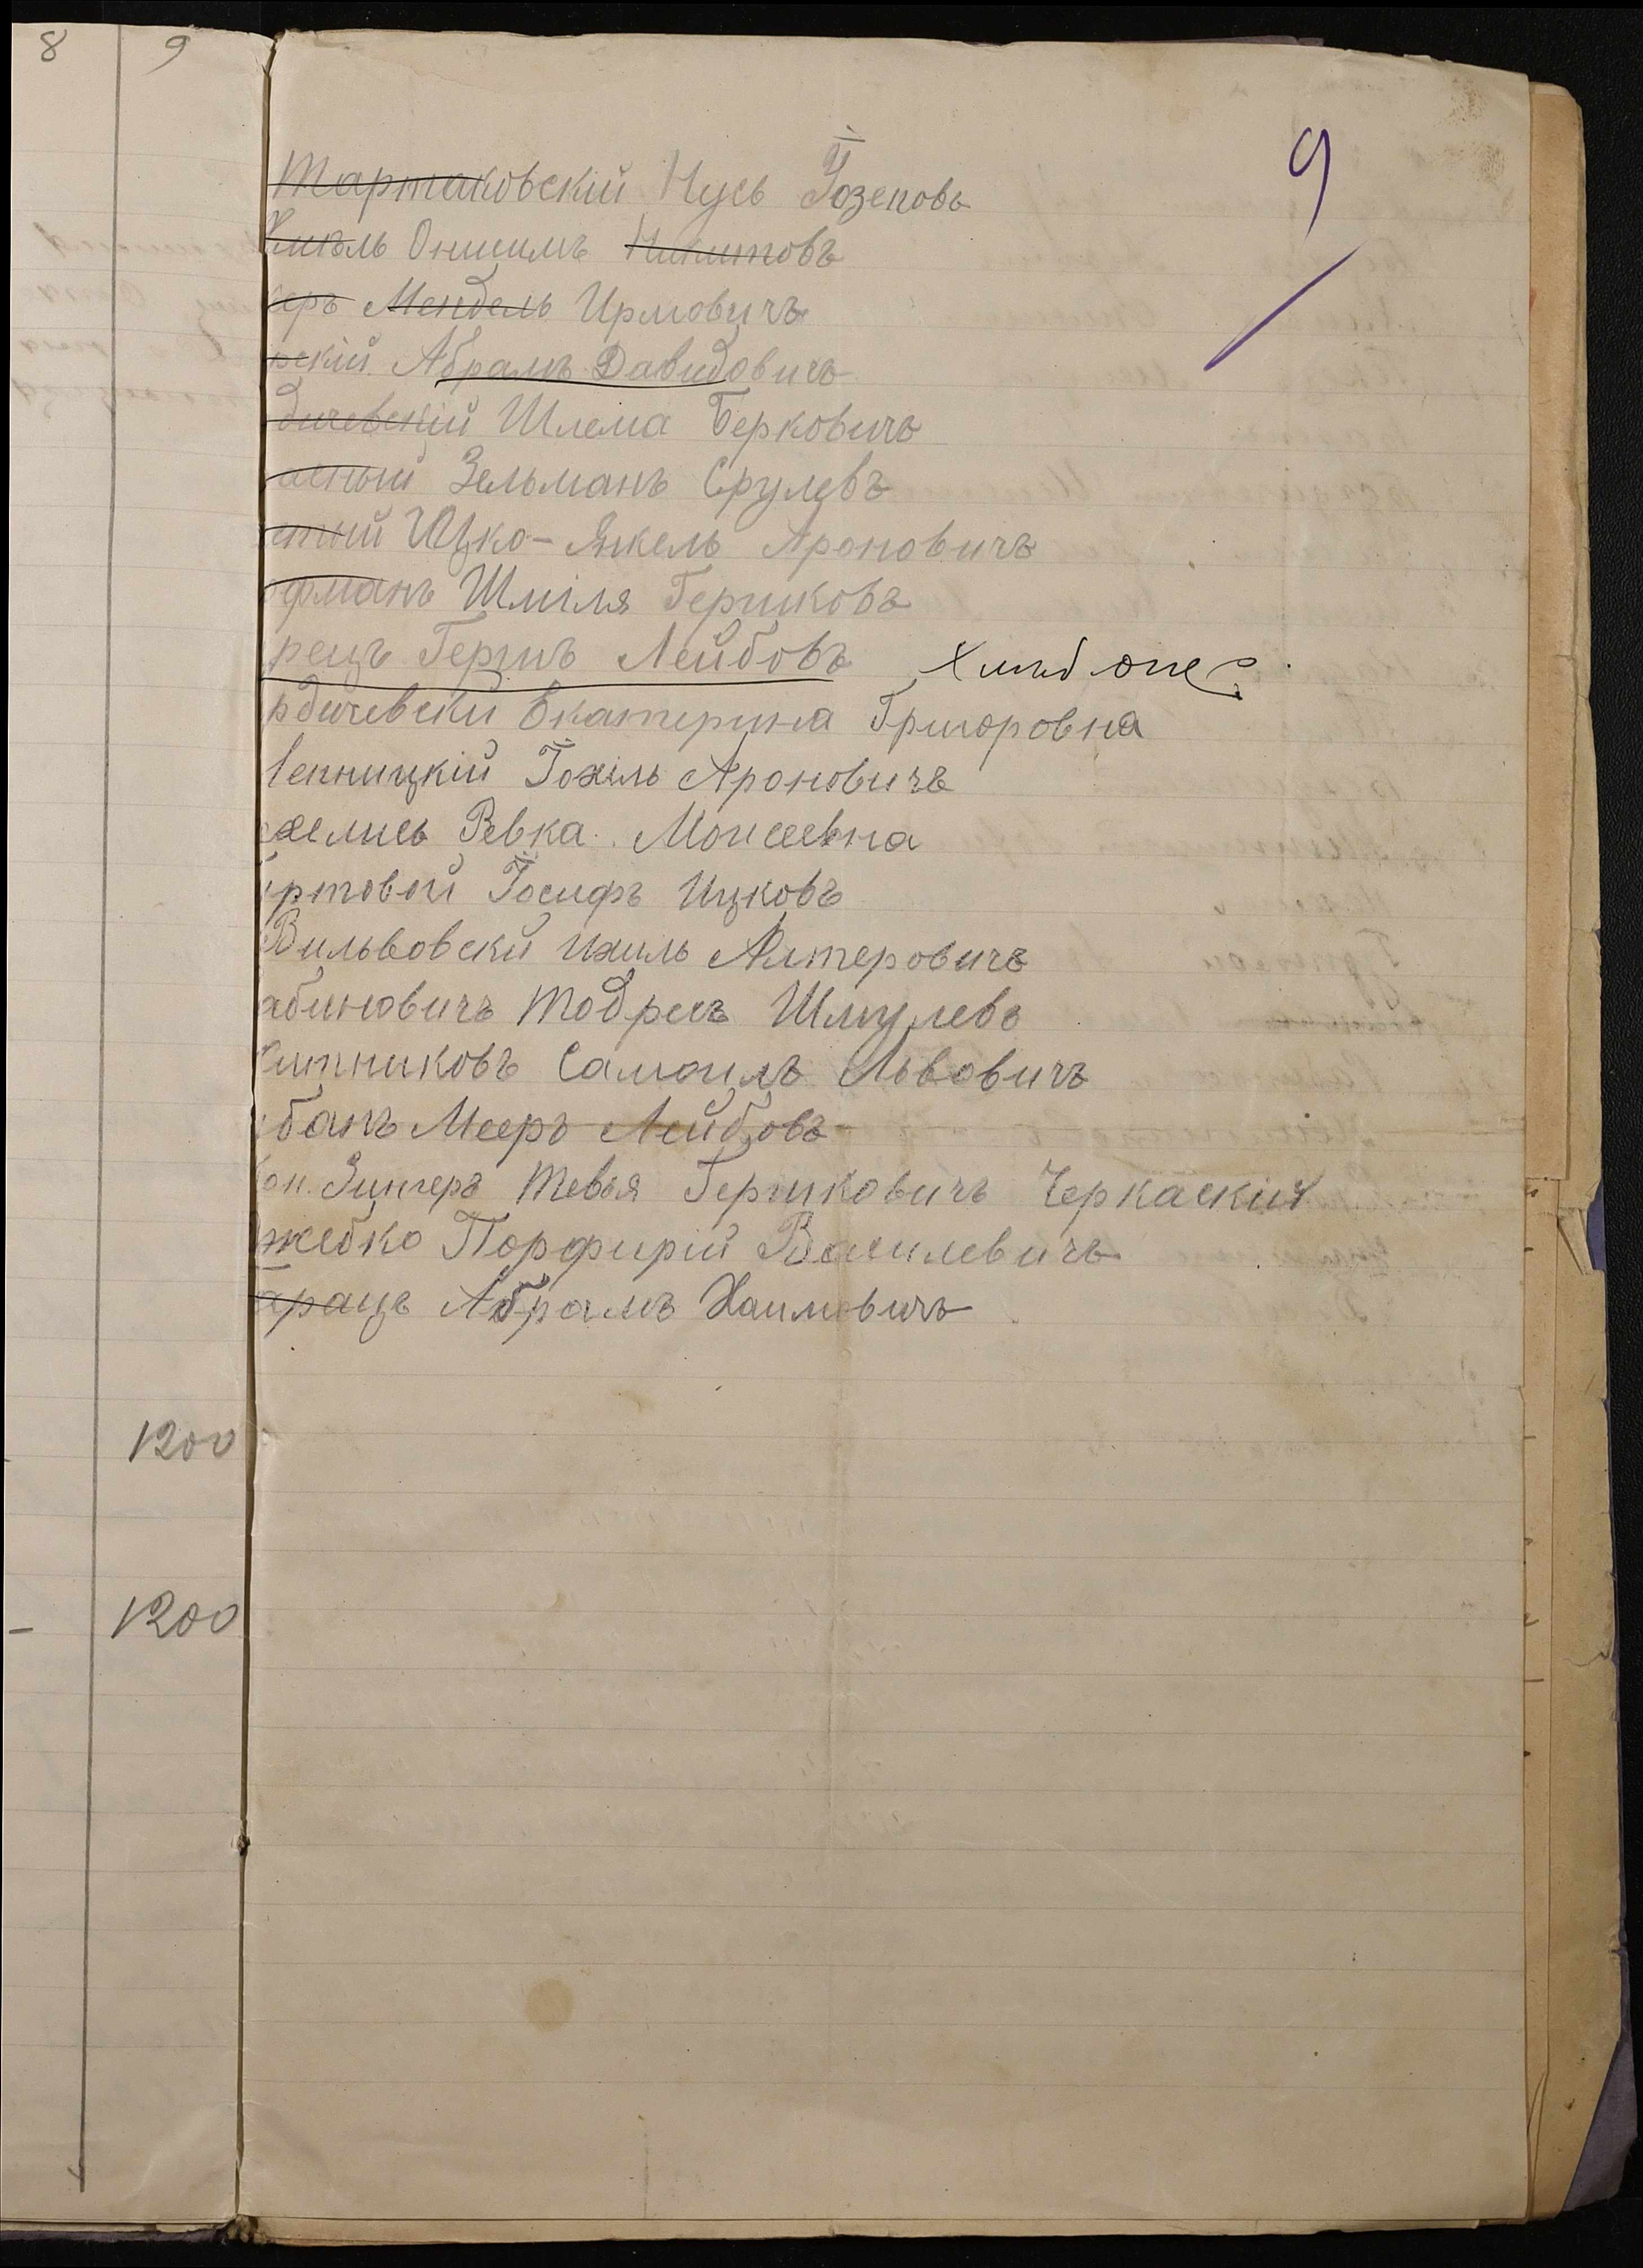 8 9
9
Тартаковскій Нусь Іозеповъ
Хмѣль Онисимъ Никитовъ
керъ Мендель Ирмовичъ
скій Абрамъ Давидовичъ
дичевскій Шлема Берковичъ
асный Зельманъ Срулевъ
стый Ицко-Янкель Ароновичъ
фманъ Шміля Гершковъ
рецъ Гершъ Лейбовъ
рдичевски Екатерина Григоровна
Лепницкій Іохіль Ароновичъ
хелисъ Ревка Моисеевна
ртовой Іосифъ Ицковъ
Вильвовски Ихиль Алтеровичъ
абиновичъ Тодресъ Шмулевъ
итниковъ Самоилъ Львовичъ
банъ Мееръ Лейбовъ
он. Зингеръ Тевья Гершковичъ Черкаскій
жебко Порфирій Василевичъ
арацъ Абрамъ Хаимовичъ
1200
1200